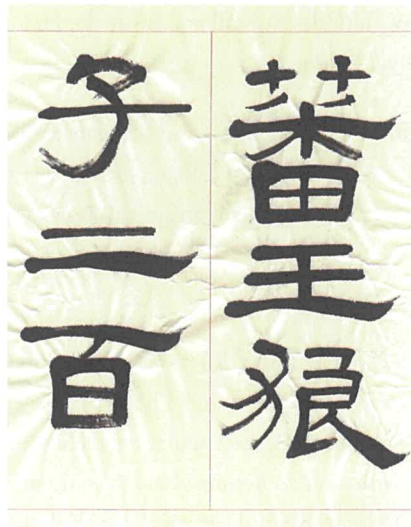 蕃王狼
子二百